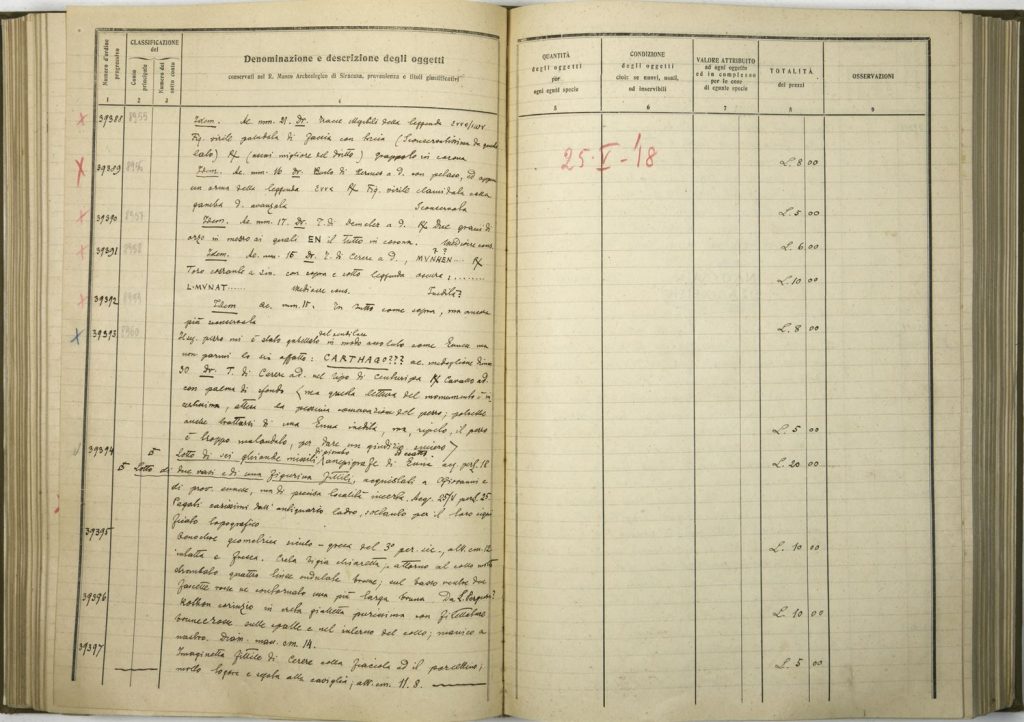 Numero d'ordine progressivo
CLASSIFICAZIONE del
Conto principale
Numero del sotto conto
Denominazione e descrizione degli oggetti
conservati nel R. Museo Archeologico di Siracusa, provenienza e titoli giustificativi
1 2 3 4
39388 8955 Idem. Ae. mm. 21. Dr. Tracce illeggibili della leggenda
Fig. virile di faccia con
lato) R/ (assai migliore del dritto) grappolo in corona
39389 8956 Idem. Ae. mm. 16 Dr. Busto di Hermes a d. con petaso, ed appena
un orma della leggenda R/ Fig. virile clamidata colla
gamba d. avanzata Sconservata
39390 8957 Idem. Ae mm. 17. Dr. T. di Demeter a d. R/ Due grani di
orzo in mezzo ai quali EN il tutto in corona. Mediocre cons.
39391 8958 Idem. Ae mm. 15 Dr. T. di Cerere a d., MVNHEN.... R/
Toro cozzante a sin. con sopra e sotto leggenda oscura: ........
L. MVNAT ...... Mediocre cons. Inedita?
39392 8959 Idem Ae. mm. 15. In tutto come sopra, ma ancora
più sconservata
39393 8960 pezzo mi è stato garantito dal venditore in modo assoluto come Ennese ma
non parmi lo sia affatto: CARTHAGO??? Ae. medaglione diam.
30 Dr. T. di Cerere a d. nel tipo di Centuripa R/ Cavallo a d.
con palma di sfondo (ma questa lettura del monumento è in
certissima, attesa la pessima conservazione del pezzo; potrebbe
anche trattarsi di una Enna inedita, ma, ripeto, il pezzo
è troppo malandato, per dare un giudizio sicuro)
39394 Lotto di sei ghiande missili di piombo anepigrafe di Enna acq. per L. 18
Lotto di due vasi e di una figurina fittili, acquistati a Giovanni e
di prov. ennese, ma di precisa località incerta. Acq. 25/V per L. 25.
Pagati carissimi dall'antiquario ladro, soltanto per il loro signi
ficato topografico
39395 Oenochoe geometrica siculo-greca del 3° per. sic., alt. cm. 12
intatta e fresca. Creta chiaretta; attorno al collo
quattro linee ondulate brune; sul basso ventre due
fascette rosse ne contornano una più larga bruna. Da
39396 Kothon corinzio in creta gialletta purissima con filettature
brune e rosse sulle spalle e nel interno del collo; manico a
nastro. Diam. mass. cm. 14.
39397 Imaginetta fittile di Cerere colla fiaccola ed il porcellino;
molto logora e rotta alla caviglia; alt. cm. 11. 8.
QUANTITÀ degli oggetti per ogni eguale specie
CONDIZIONE degli oggetti cioè: se nuovi, usati, od inservibili
VALORE ATTRIBUITO ad ogni oggetto ed in complesso per le cose di eguale specie
TOTALITÀ dei prezzi
OSSERVAZIONI
5 6 7 8 9
25-V-'18
L. 8 00
L. 5 00
L. 6 00
L. 10 00
L. 8 00
L. 5 00
L. 20 00
L. 10 00
L. 10 00
L. 5 00